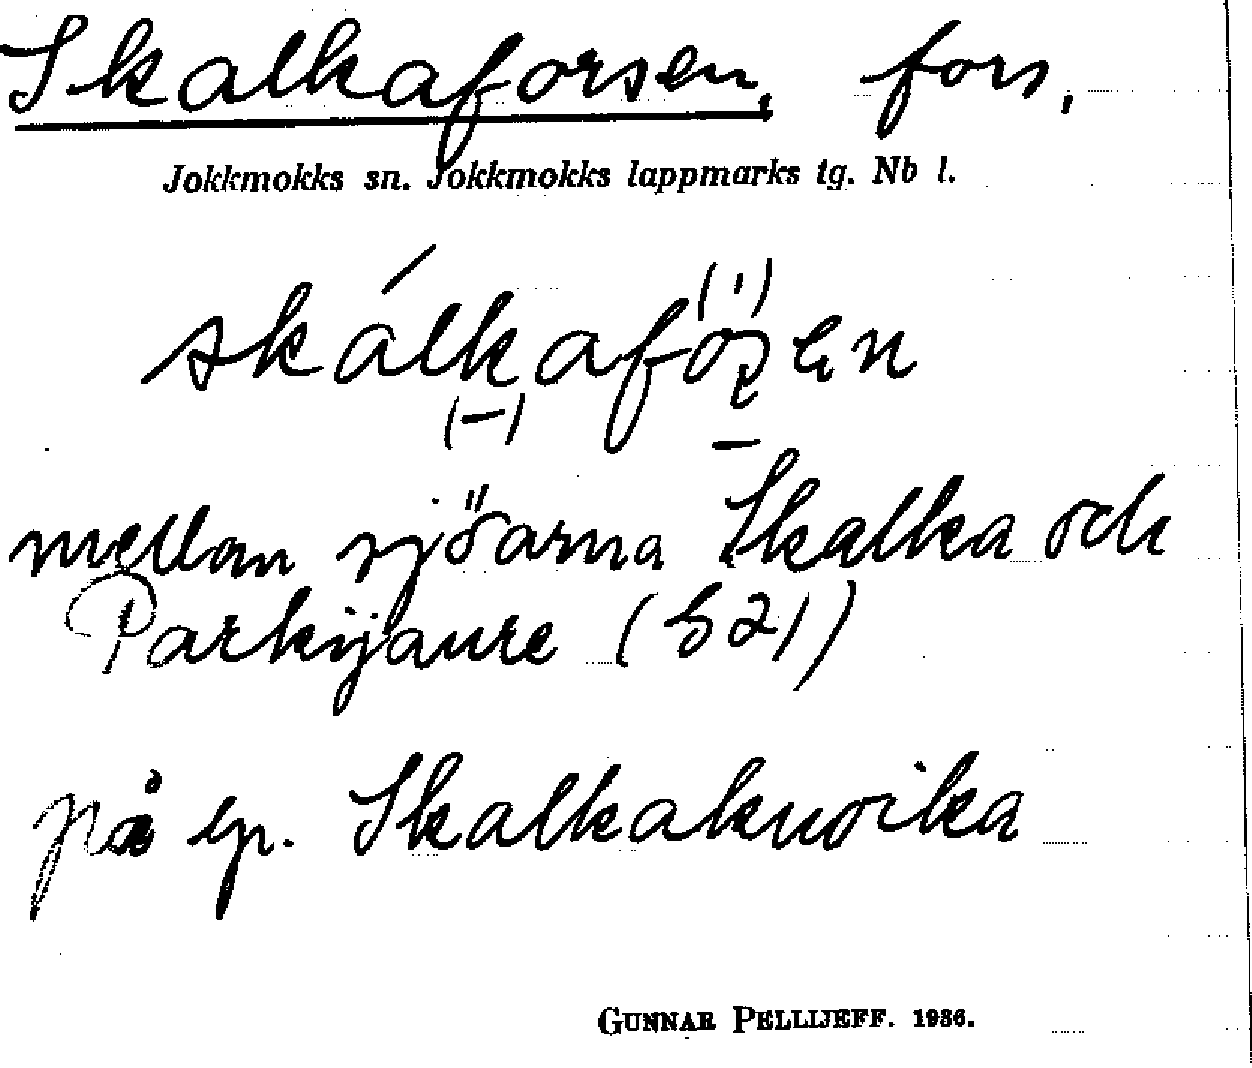 Skalkaforsen, fors,
Jokkmokks sn. Jokkmokks lappmarks tg. Nb l.
mellan sjöarna Skalka och
Parkijaure (521)
på lp. Skalkakuoika
GUNNAR PELLIJEFF. 1936.